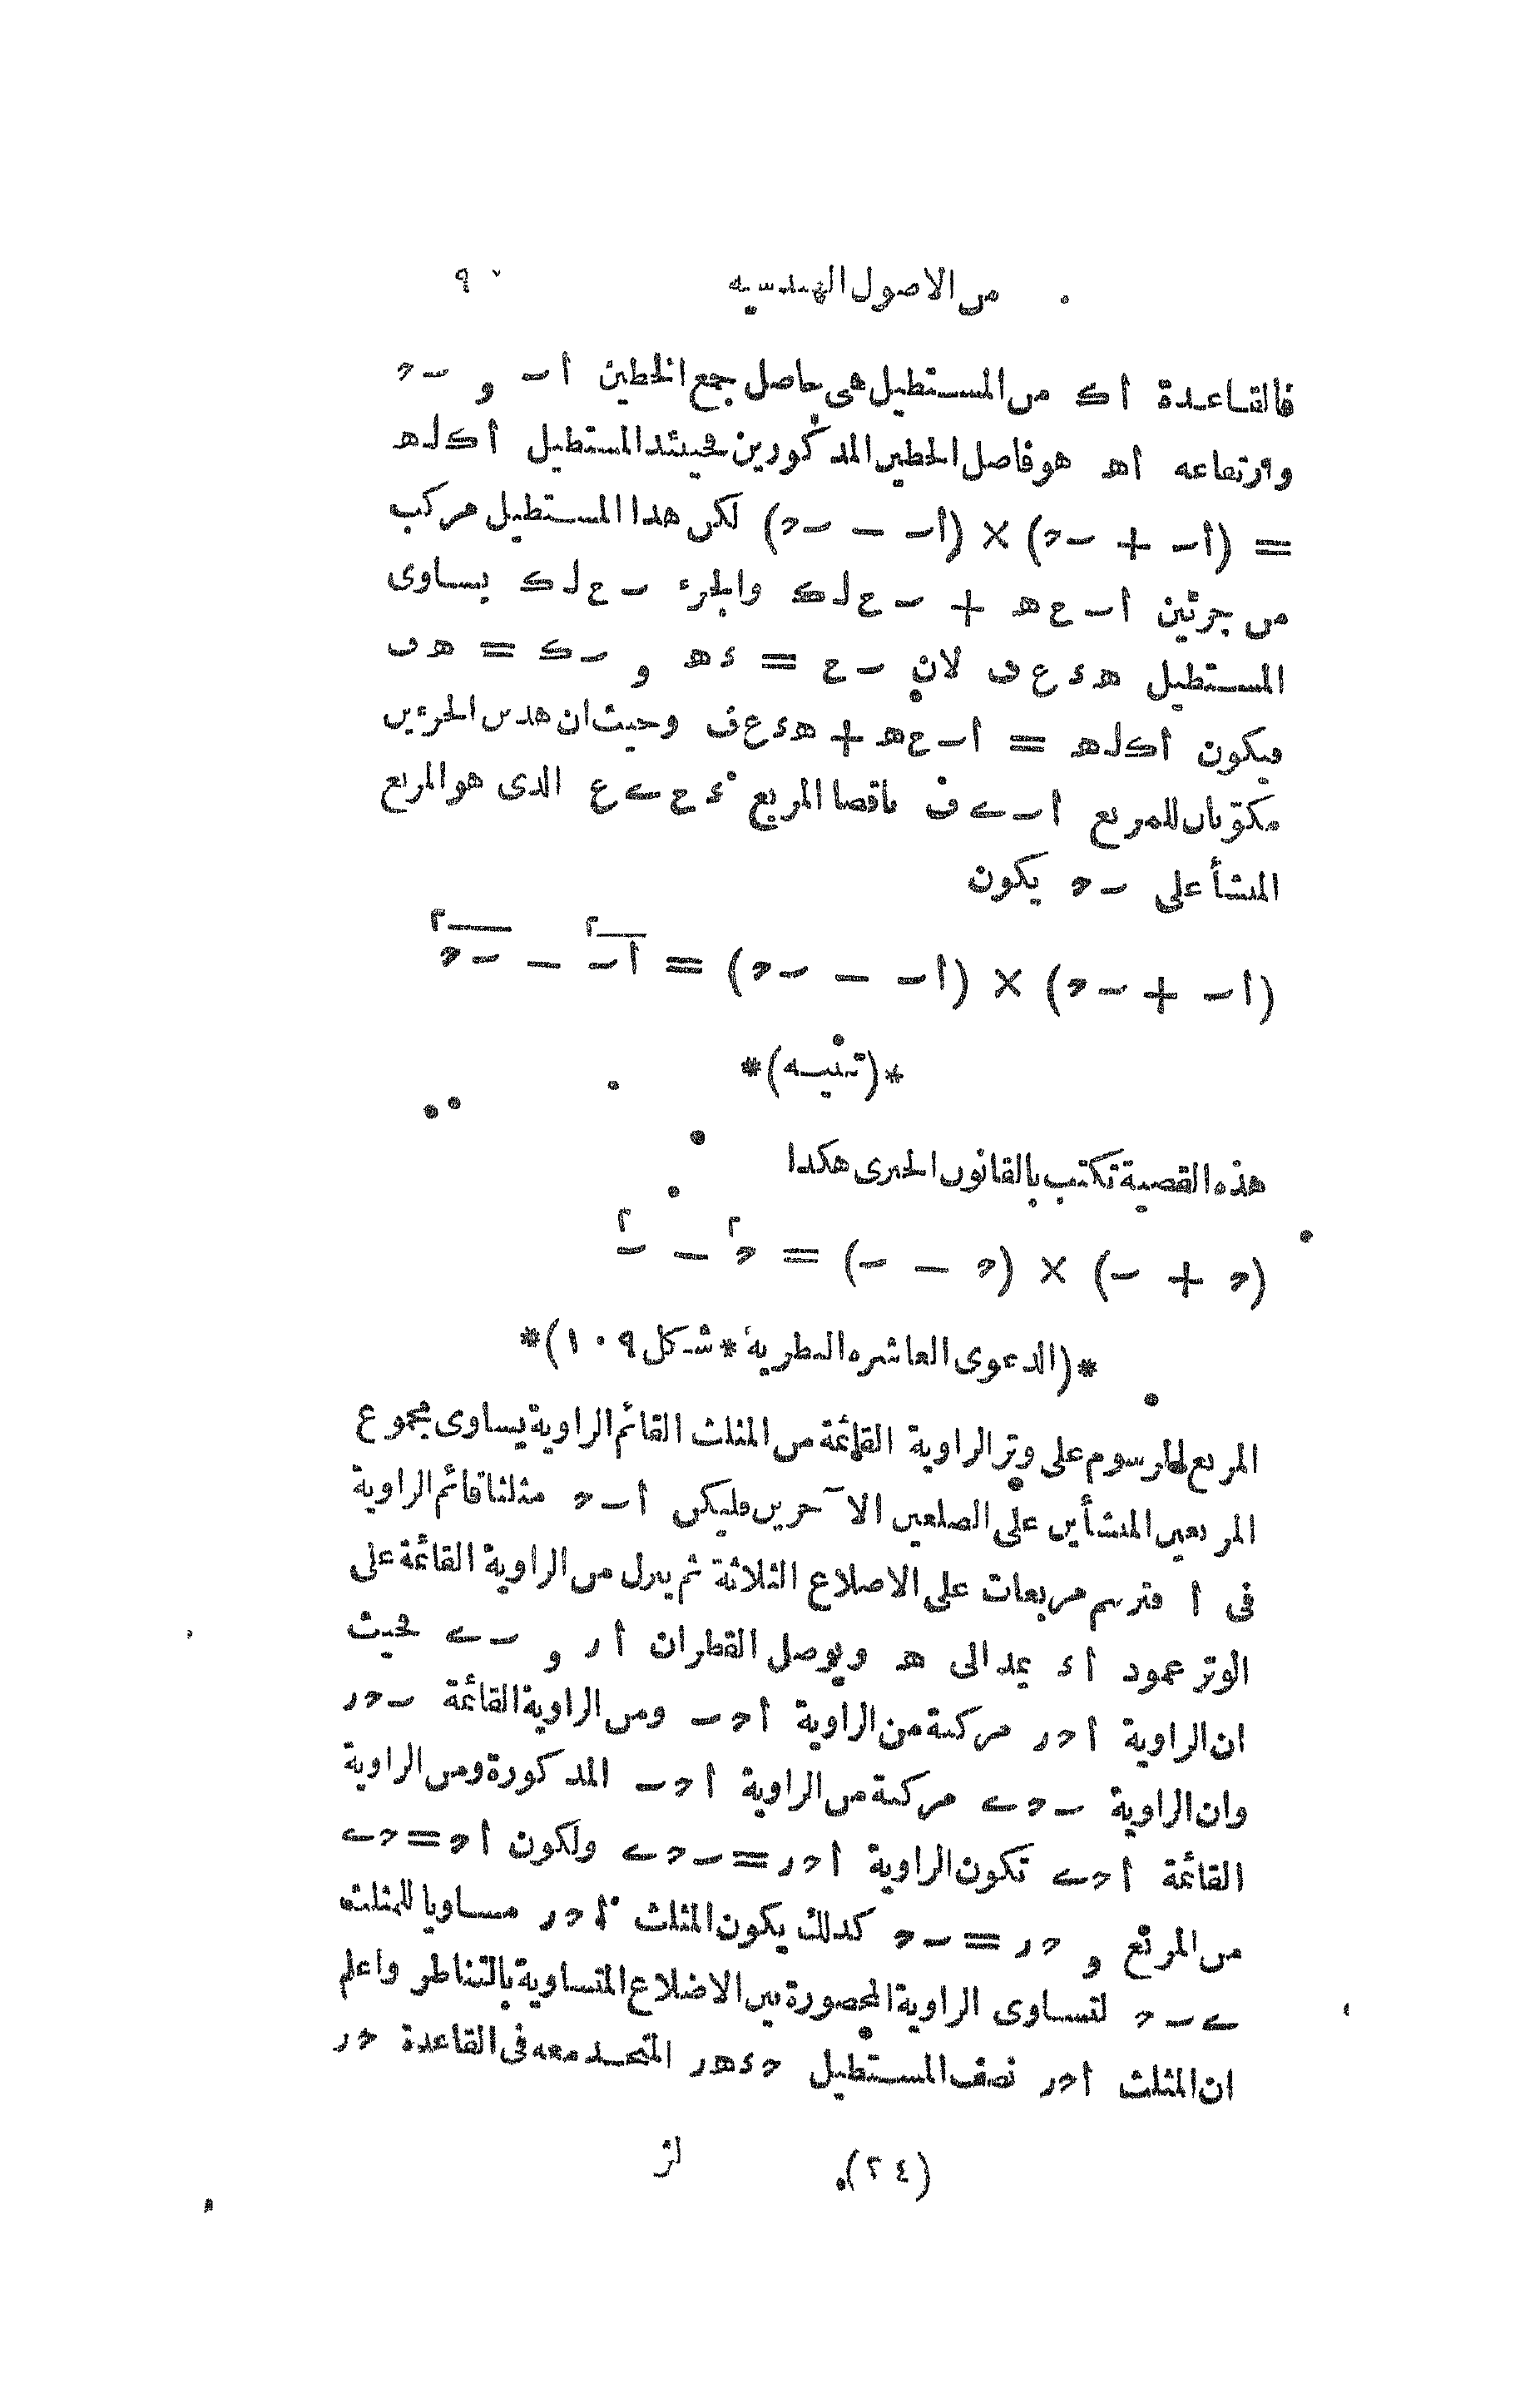 من الاصول الهندسيه ٩
فالقاعدة أك من المستطيل هى حاصل جمع الخطين أب و بح
وارتفاعه أه هو فاصل الخطين المذكورين فحينئذ المستطيل أكله
= (أب + بح) × (أب - بح) لكن هذا المستطيل مركب
من جزئين أبعه + بعلك والجزء بعلك يساوى
المستطيل هءعف لان بع = ءه و بك = هف
فيكون أكله = أبعه + هءعف وحيث ان هذين الجزءين
مكوّنان للمربع أبىف ناقصا المربع ءعىع الذى هو المربع
المنشأ على بح يكون
(أب + بح) × (أب - بح) = أب٢ - بح٢
*(تنبيه)*
هذه القضية تكتب بالقانون الجبرى هكذا
(ح + ب) × (ح - ب) = ح٢ - ب٢
*(الدعوى العاشره النظرية * شكل ١٠٩)*
المربع المرسوم على وتر الزاوية القائمة من المثلث القائم الزاوية يساوى مجموع
المربعين المنشأين على الضلعين الآخرين فليكن أبح مثلثا قائم الزاوية
فى أ فترسم مربعات على الاضلاع الثلاثة ثم ينزل من الزاوية القائمة على
الوتر عمود أء يمد الى ه ويوصل القطران أر و بى بحيث
ان الزاوية أحر مركبة من الزاوية أحب ومن الزاوية القائمة بحر
وان الزاوية بحى مركبة من الزاوية أحب المذكورة ومن الزاوية
القائمة أحى تكون الزاوية أحر = بحى ولكون أح = حى
من المربع و حر = بح كذلك يكون المثلث أحر مساويا للمثلث
ىبح لتساوى الزاوية المحصورة بين الاضلاع المتساوية بالتناظر واعلم
ان المثلث أحر نصف المستطيل حءهر المتحد معه فى القاعدة حر
(٢٤) لز